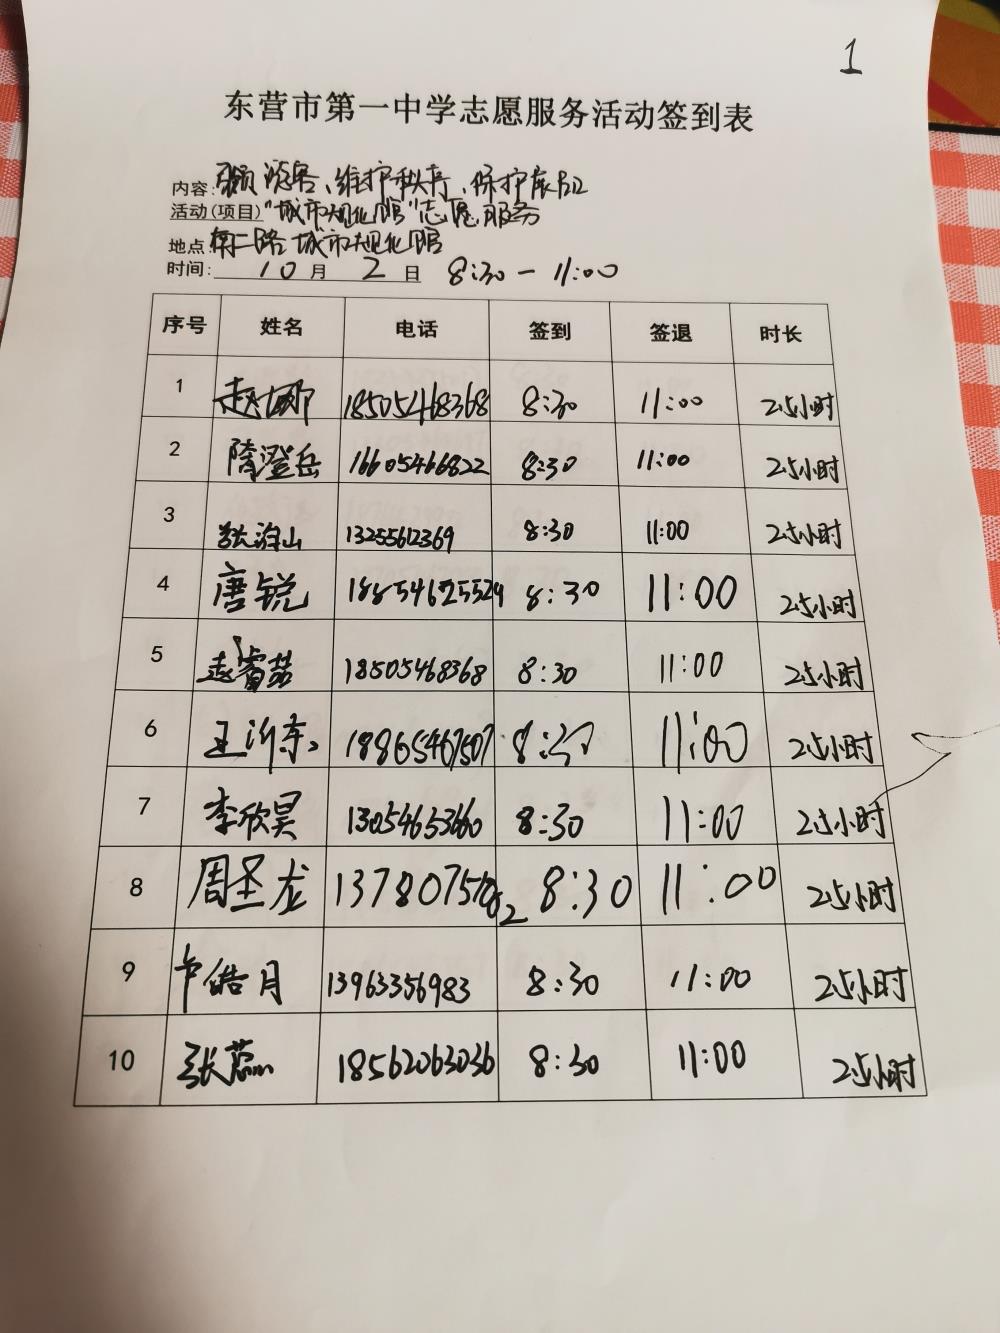 1
东营市第一中学志愿服务活动签到表
内容: 维护秩序、保护展品
活动(项目)"城市规化馆"志愿服务
地点 南二路城市规化馆
时间: 10月 2日 8:30-11:00
序号 姓名 电话 签到 签退 时长
1 赵娜 18505468368 8:30 11:00 2.5小时
2 隋澄岳 16605466822 8:30 11:00 2.5小时
3 13255612369 8:30 11:00 2.5小时
4 唐锐 8:30 11:00 2.5小时
5 18505468368 8:30 11:00 2.5小时
6 王沂东 18865467507 8:30 11:00 2.5小时
7 李欣昊 13054653660 8:30 11:00 2.5小时
8 周圣龙 8:30 11:00 2.5小时
9 皓月 13963356983 8:30 11:00 2.5小时
10 张蕊 18562063036 8:30 11:00 2.5小时